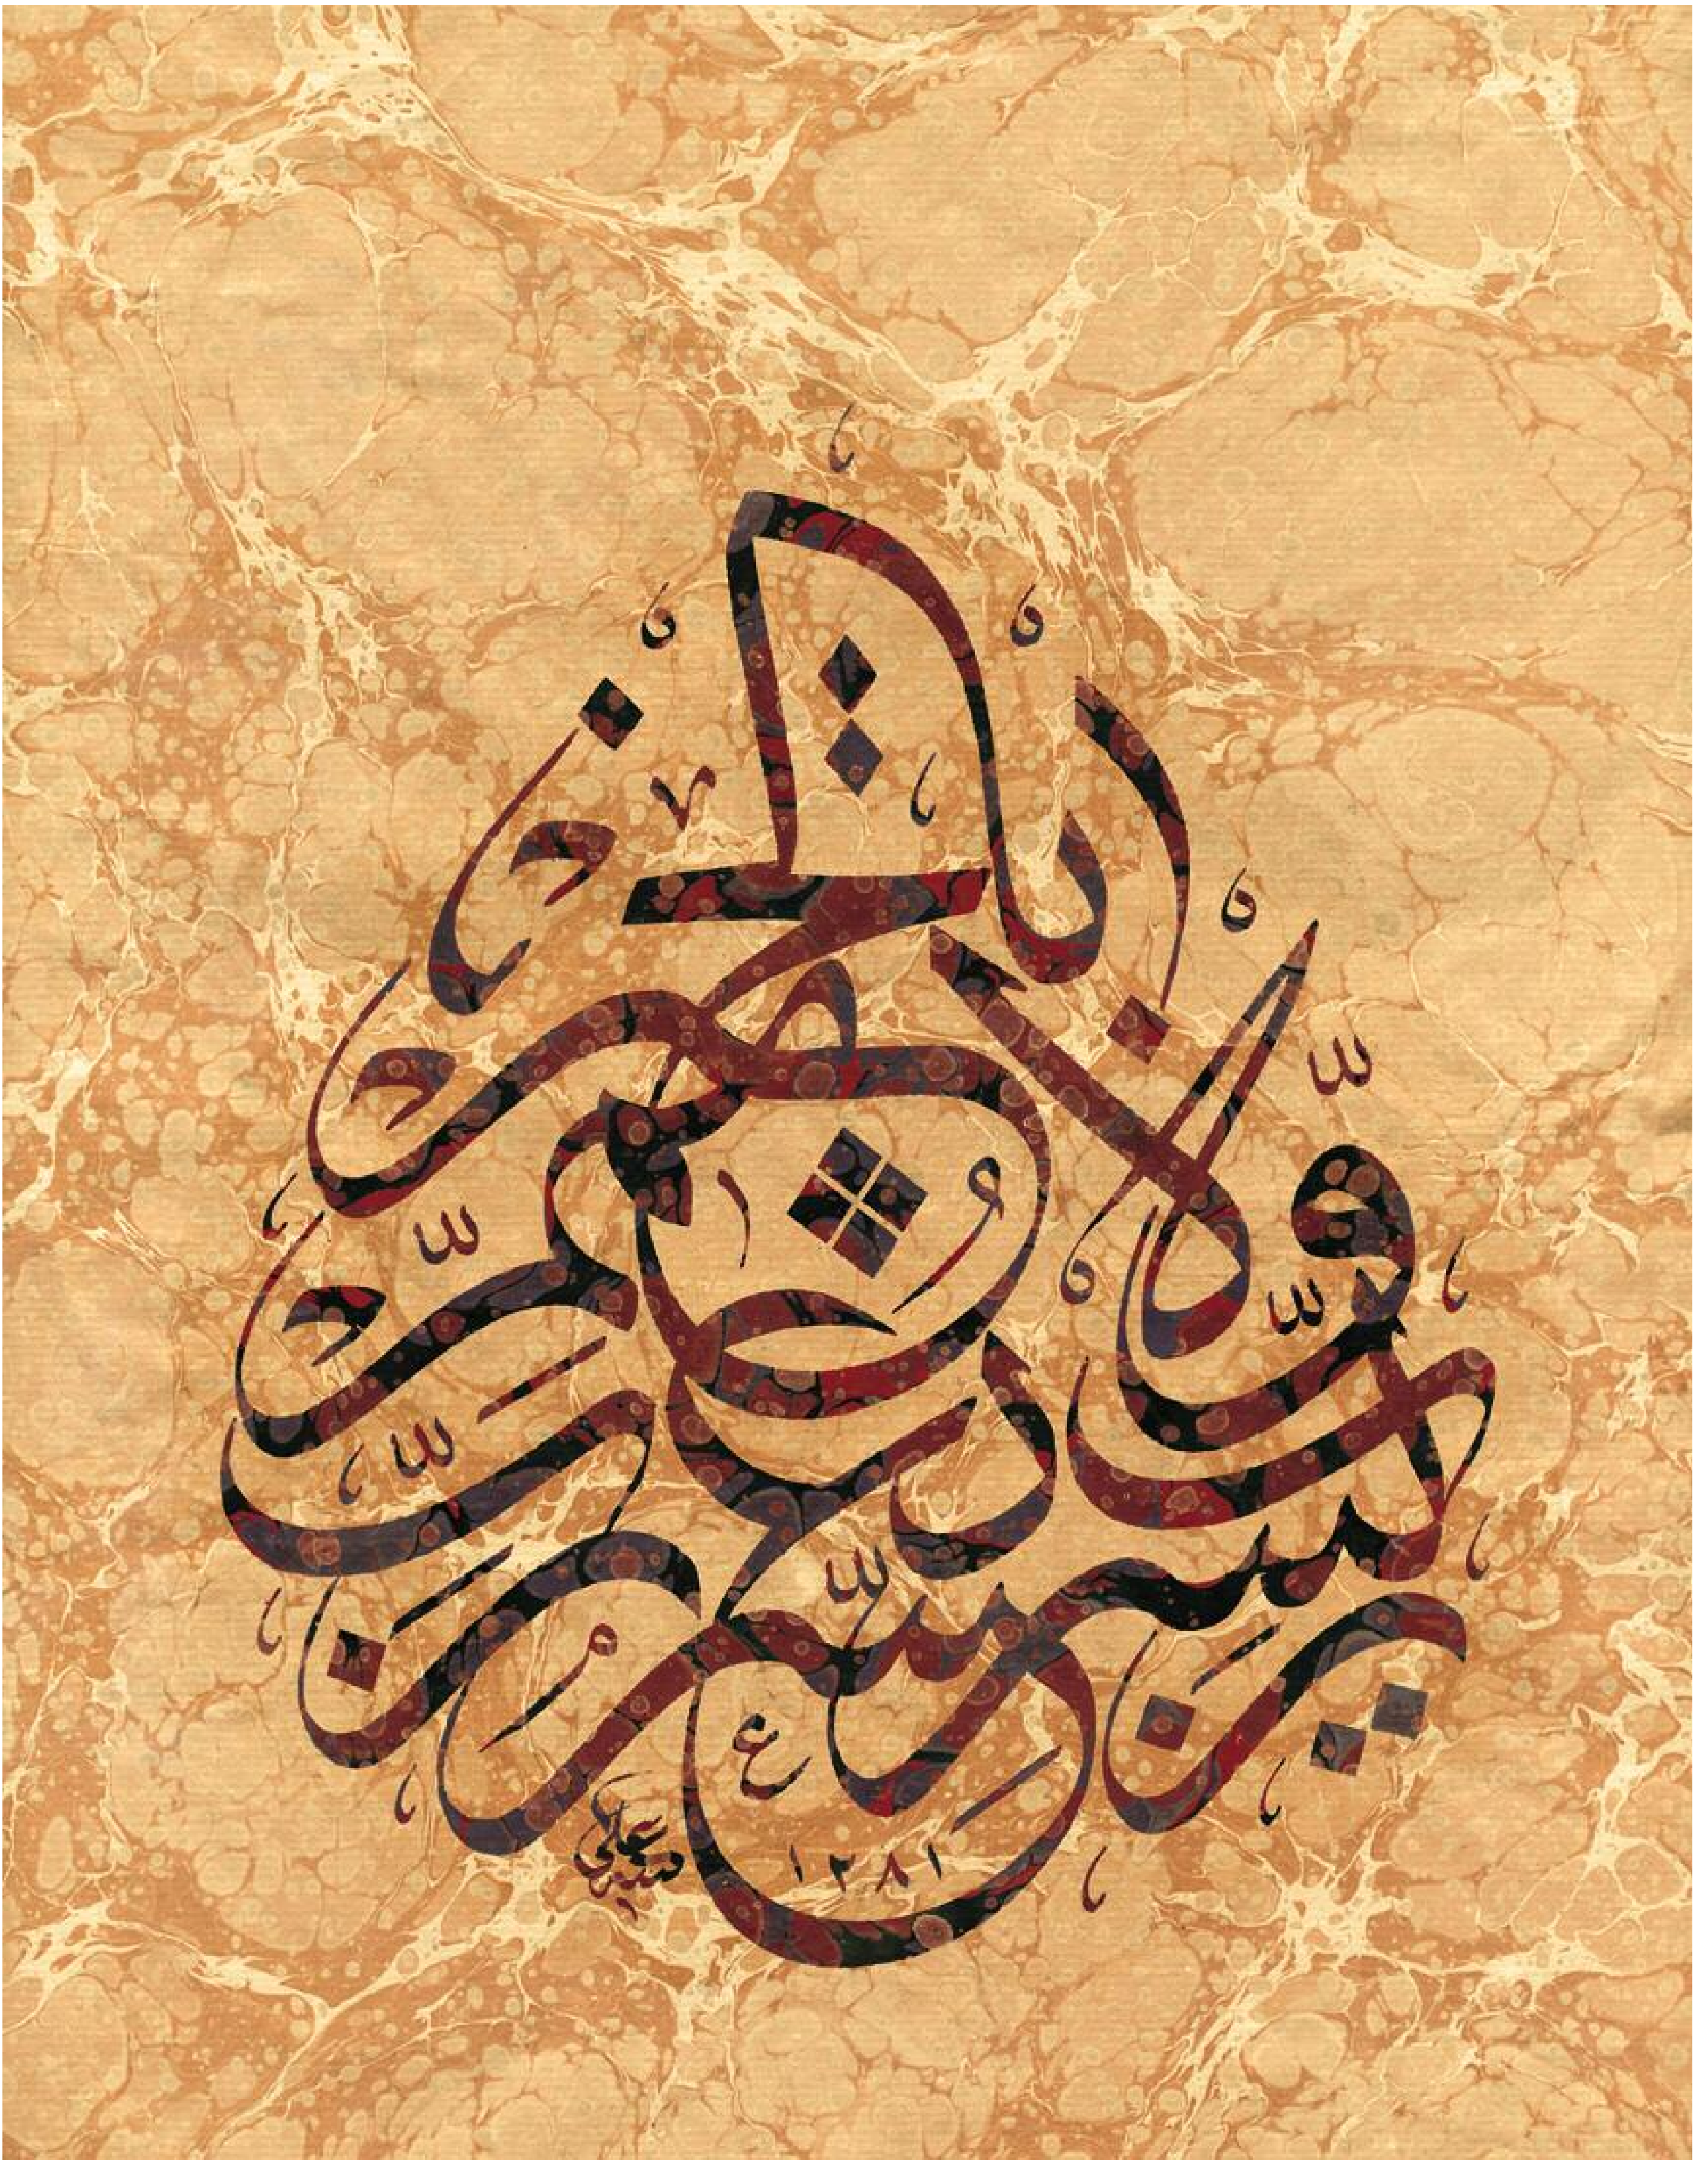 رب يسر ولا تعسر
رب تمم بالخير
علي
١٢٨١